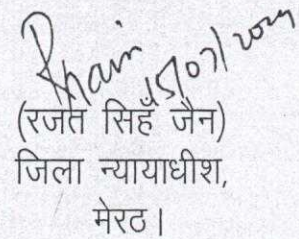 15/07/2024
(रजत सिहँ जैन)
जिला न्यायाधीश,
मेरठ।